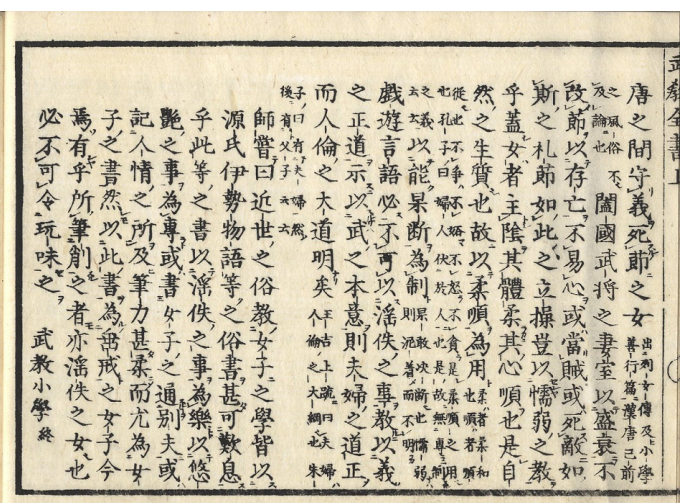 武教全書上
唐之間守義死節之女出列女傳及小學善行篇漢唐已前
之風俗不及論也闔國武將之妻室以盛衰不
改節以存亡不易心或當賊或死敵如
斯之札節如此之立操豈以懦弱之教
乎蓋女者主陰其體柔其心順也是自
然之生質也故以柔順為用柔者柔和也順者順
從也不爭不妬不怒不貪是柔順之用也孔子曰婦人伏於人也是故無專制
之義云云以能果斷為制果敢决断也懦弱則泥著而不明
戲遊言語必不可以淫佚之事教以義
之正道示以武之本意則夫婦之道正
而人倫之大道明矣王吉上疏曰夫婦人倫之大綱也朱
子曰有夫婦然後有父子云云
師嘗曰近世之俗教女子之學皆以
源氏伊勢物語等之俗書甚可歎息
乎此等之書以淫佚之事為樂以悠
艶之事為專或書女子之通別夫或
記人情之所及筆力甚柔而尤為女
子之書然以此書為常戒之女子今
焉有乎所筆削之者亦淫佚之女也
必不可令玩味之　武教小學終